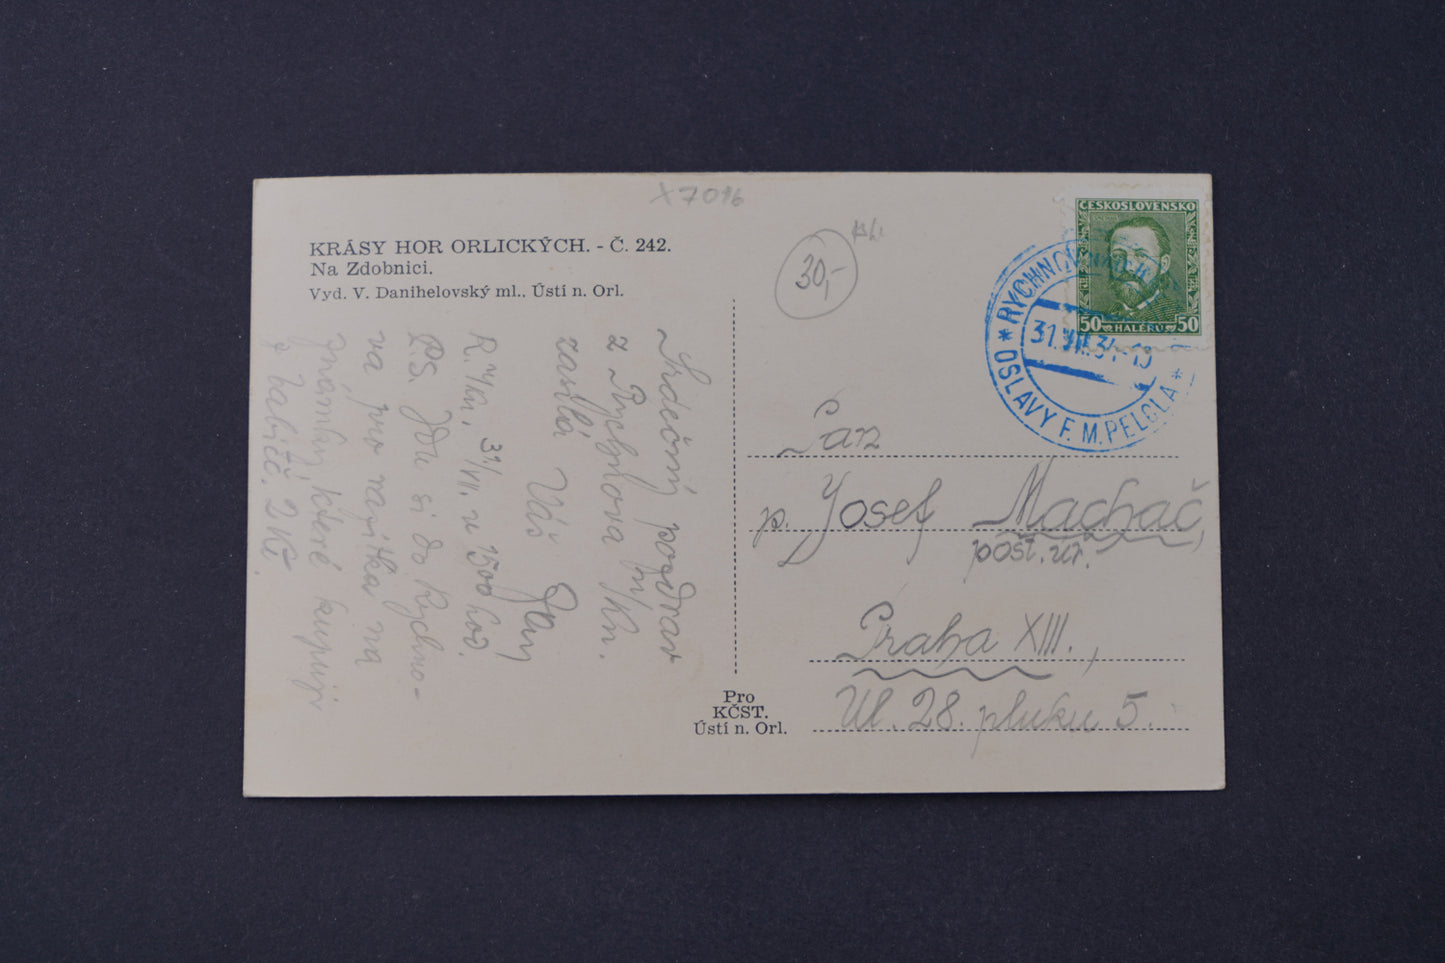 X7016
KRÁSY HOR ORLICKÝCH. - Č. 242.
Na Zdobnici.
Vyd. V. Danihelovský ml., Ústí n. Orl.
30,-
ČESKOSLOVENSKO
50 HALÉŘŮ 50
RYCHNOV NAD KN.
31.VII.34-19
* OSLAVY F. M. PELCLA *
Srdečný pozdrav
z Rychnova n/Kn.
zasílá Váš Jan
R. n/Kn, 31/VII. v 1500 hod.
P.S. Jdu si do Rychno-
va pro razítka na
známky, které kupuji
Pan
p. Josef Machač,
post. úř.
Praha XIII.,
Ul. 28. pluku 5.
Pro
KČST.
Ústí n. Orl.